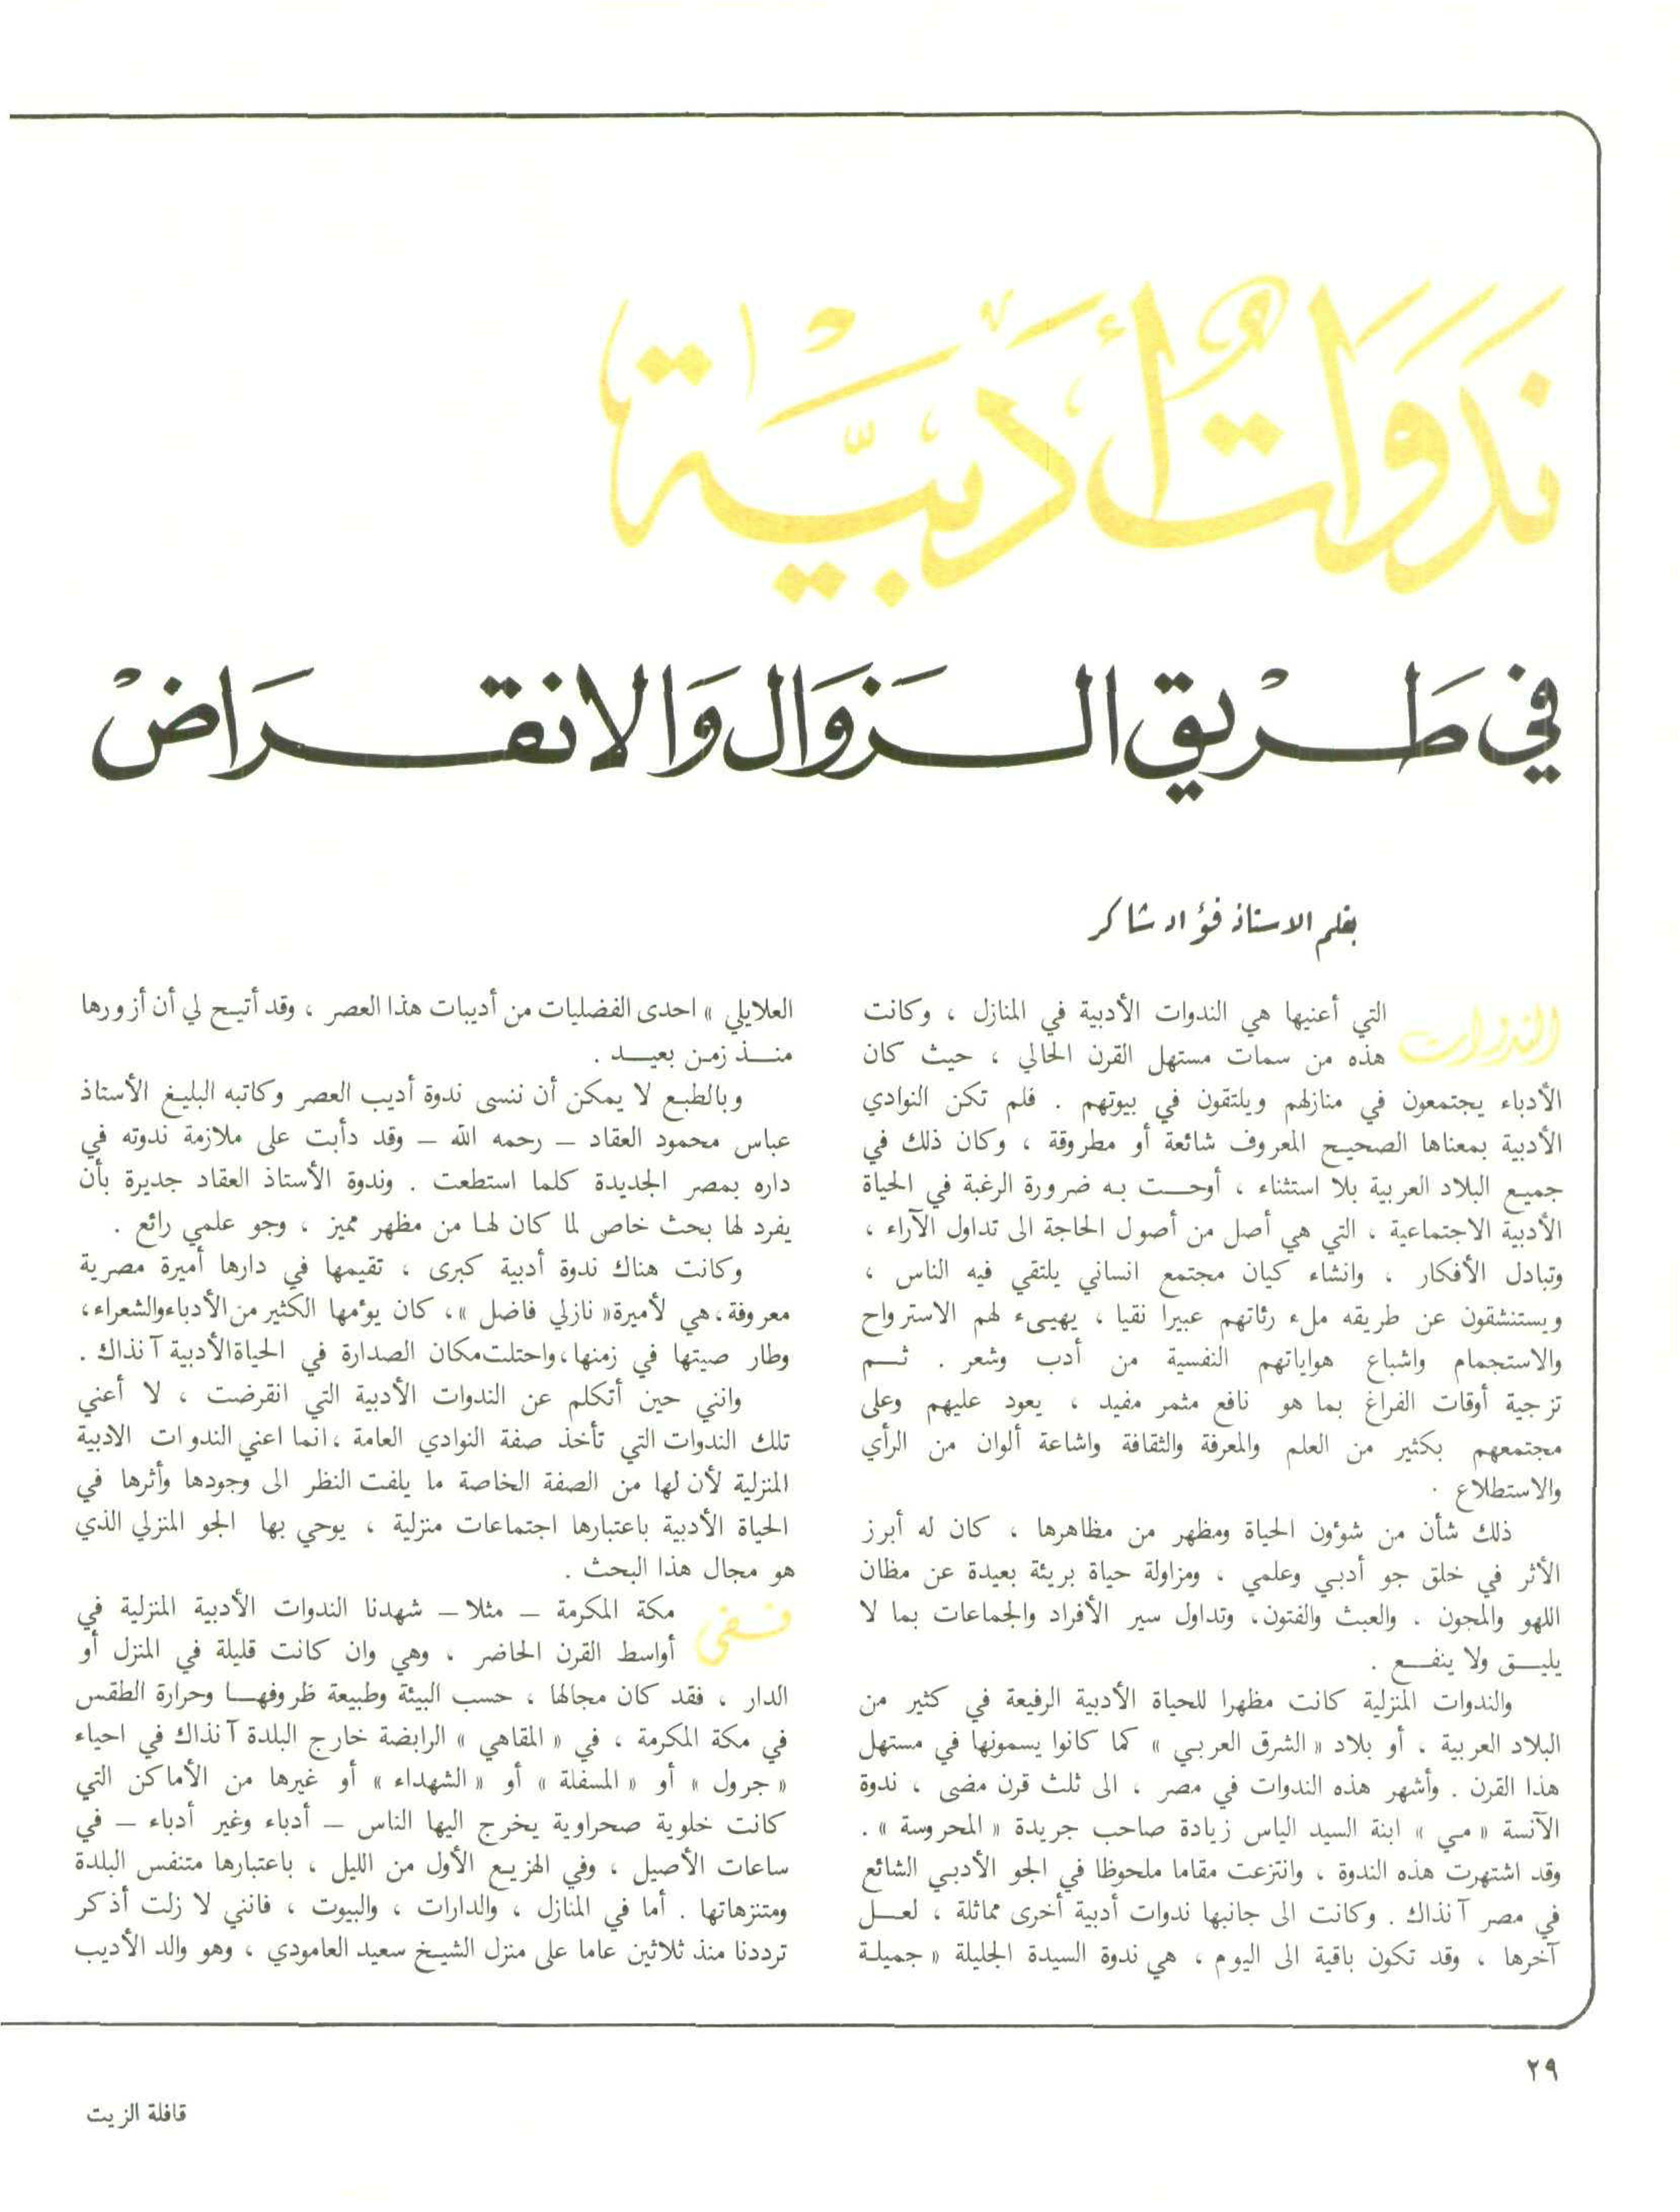 نَدَوَاتٌ أَدَبِيَّةٌ
في طَريق الزَوَال وَالانقرَاضْ
بقلم الاستاذ فؤاد شاكر
الندوات التي أعنيها هي الندوات الأدبية في المنازل ، وكانت
هذه من سمات مستهل القرن الحالي ، حيث كان
الأدباء يجتمعون في منازلهم ويلتقون في بيوتهم . فلم تكن النوادي
الأدبية بمعناها الصحيح المعروف شائعة أو مطروقة ، وكان ذلك في
جميع البلاد العربية بلا استثناء ، أوحت به ضرورة الرغبة في الحياة
الأدبية الاجتماعية ، التي هي أصل من أصول الحاجة الى تداول الآراء ،
وتبادل الأفكار ، وانشاء كيان مجتمع انساني يلتقي فيه الناس ،
ويستنشقون عن طريقه ملء رئاتهم عبيرا نقيا ، يهيىء لهم الاسترواح
والاستجمام واشباع هواياتهم النفسية من أدب وشعر . ثم
تزجية أوقات الفراغ بما هو نافع مثمر مفيد ، يعود عليهم وعلى
مجتمعهم بكثير من العلم والمعرفة والثقافة واشاعة ألوان من الرأي
والاستطلاع .
ذلك شأن من شؤون الحياة ومظهر من مظاهرها ، كان له أبرز
الأثر في خلق جو أدبي وعلمي ، ومزاولة حياة بريئة بعيدة عن مظان
اللهو والمجون . والعبث والفتون، وتداول سير الأفراد والجماعات بما لا
يليق ولا ينفع .
والندوات المنزلية كانت مظهرا للحياة الأدبية الرفيعة في كثير من
البلاد العربية ، أو بلاد « الشرق العربي » كما كانوا يسمونها في مستهل
هذا القرن . وأشهر هذه الندوات في مصر ، الى ثلث قرن مضى ، ندوة
الآنسة « مي » ابنة السيد الياس زيادة صاحب جريدة « المحروسة » .
وقد اشتهرت هذه الندوة ، وانتزعت مقاما ملحوظا في الجو الأدبي الشائع
في مصر آنذاك . وكانت الى جانبها ندوات أدبية أخرى مماثلة ، لعل
آخرها ، وقد تكون باقية الى اليوم ، هي ندوة السيدة الجليلة « جميلة
العلايلي » احدى الفضليات من أديبات هذا العصر ، وقد أتيح لي أن أزورها
منذ زمن بعيد .
وبالطبع لا يمكن أن ننسى ندوة أديب العصر وكاتبه البليغ الأستاذ
عباس محمود العقاد – رحمه الله – وقد دأبت على ملازمة ندوته في
داره بمصر الجديدة كلما استطعت . وندوة الأستاذ العقاد جديرة بأن
يفرد لها بحث خاص لما كان لها من مظهر مميز ، وجو علمي رائع .
وكانت هناك ندوة أدبية كبرى ، تقيمها في دارها أميرة مصرية
معروفة، هي لأميرة« نازلي فاضل »، كان يؤمها الكثير من الأدباء والشعراء،
وطار صيتها في زمنها، واحتلت مكان الصدارة في الحياة الأدبية آنذاك .
وانني حين أتكلم عن الندوات الأدبية التي انقرضت ، لا أعني
تلك الندوات التي تأخذ صفة النوادي العامة ، انما اعني الندوات الادبية
المنزلية لأن لها من الصفة الخاصة ما يلفت النظر الى وجودها وأثرها في
الحياة الأدبية باعتبارها اجتماعات منزلية ، يوحي بها الجو المنزلي الذي
هو مجال هذا البحث .
ففي مكة المكرمة – مثلا – شهدنا الندوات الأدبية المنزلية في
أواسط القرن الحاضر ، وهي وان كانت قليلة في المنزل أو
الدار ، فقد كان مجالها ، حسب البيئة وطبيعة ظروفها وحرارة الطقس
في مكة المكرمة ، في « المقاهي » الرابضة خارج البلدة آنذاك في احياء
« جرول » أو « المسفلة » أو « الشهداء » أو غيرها من الأماكن التي
كانت خلوية صحراوية يخرج اليها الناس – أدباء وغير أدباء – في
ساعات الأصيل ، وفي الهزيع الأول من الليل ، باعتبارها متنفس البلدة
ومتنزهاتها . أما في المنازل ، والدارات ، والبيوت ، فانني لا زلت أذكر
ترددنا منذ ثلاثين عاما على منزل الشيخ سعيد العامودي ، وهو والد الأديب
٢٩
قافلة الزيت